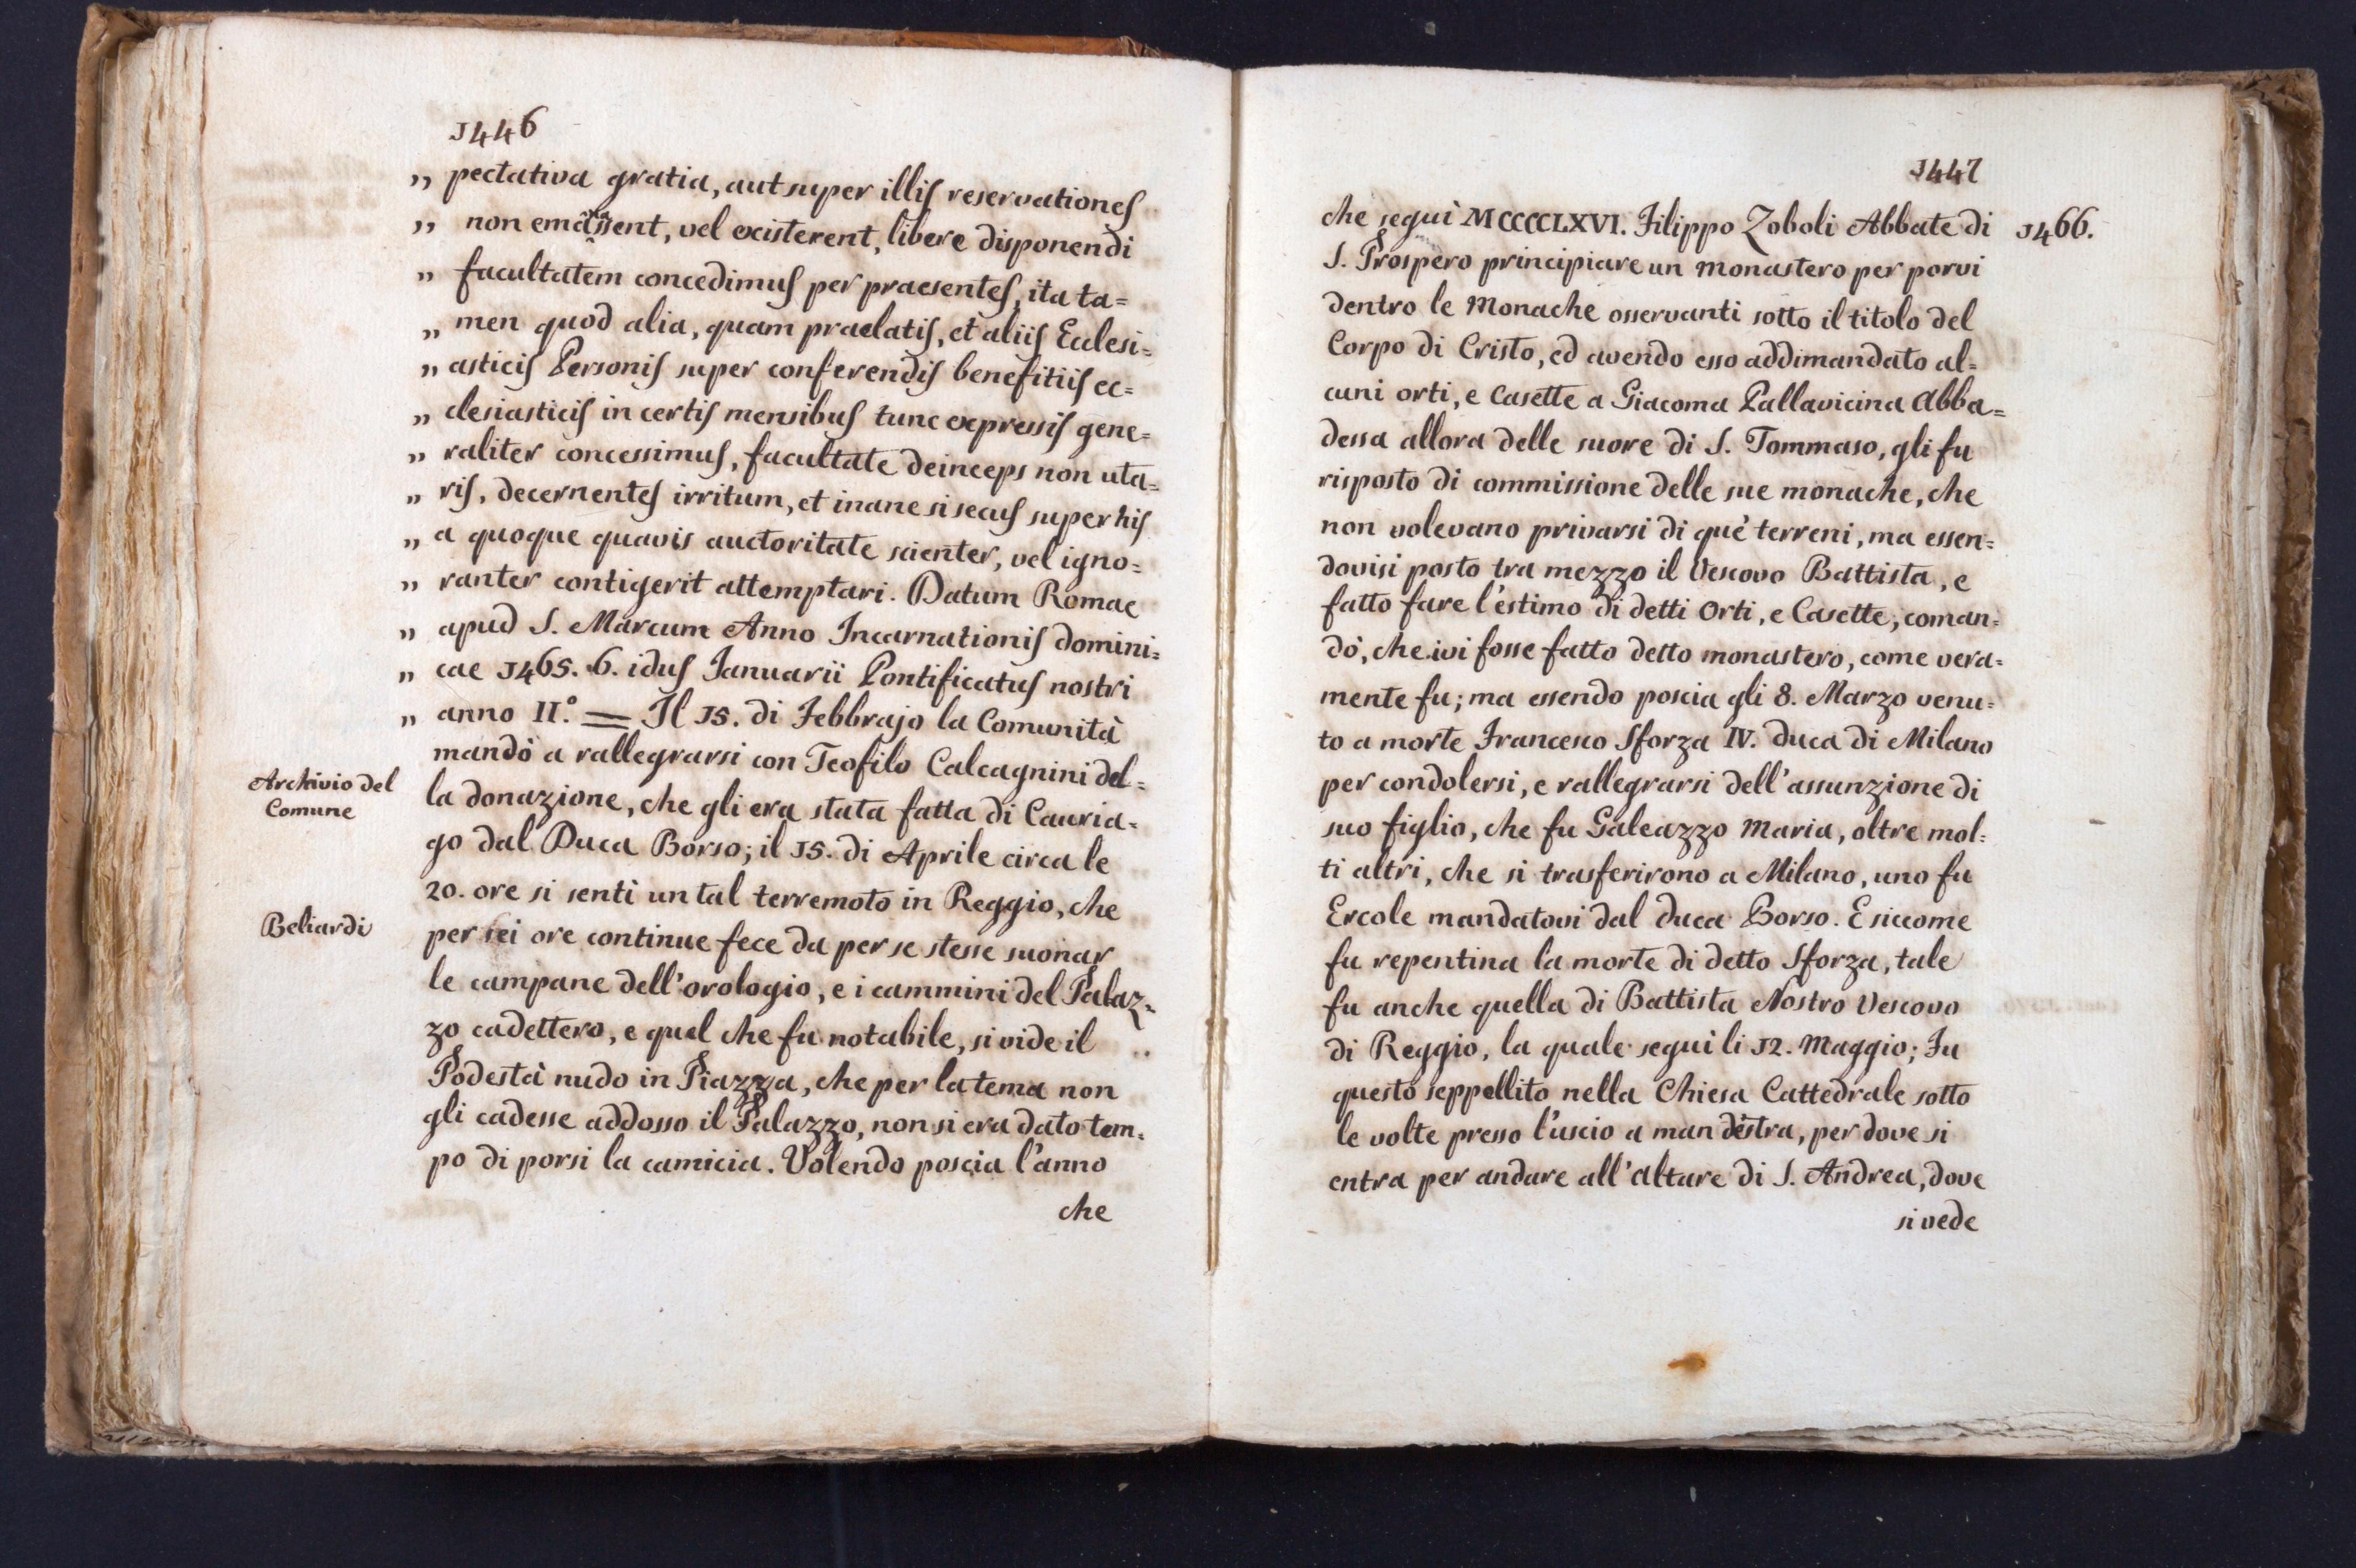 1446
„ pectativa gratia, aut super illis reservationes
„ non emanassent, vel existerent, libere disponendi
„ facultatem concedimus per praesentes, ita ta=
„ men quod alia, quam praelatis, et aliis Eclesi=
„ asticis Personis super conferendis benefitiis ec=
„ clesiasticis in certis mensibus tunc expressis gene=
„ raliter concessimus, facultate deinceps non uta=
„ ris, decernentes irritum, et inane si secus super his
„ a quoque quavis auctoritate scienter, vel igno=
„ ranter contigerit attemptari. Datum Romae
„ apud S. Marcum Anno Incarnationis domini=
„ cae 1465. 6. idus Januarii Pontificatus nostri
„ anno II.° = Il 15. di Febbrajo la Comunità
mandò a rallegrarsi con Teofilo Calcagnini del=
Archivio del
Comune
la donazione, che gli era stata fatta di Cauria=
go dal Duca Borso; il 15. di Aprile circa le
20. ore si sentì un tal terremoto in Reggio, che
Beliardi
per sei ore continue fece da per se stesse suonar
le campane dell'orologio, e i cammini del Palaz=
zo cadettero, e quel che fu notabile, si vide il
Podestà nudo in Piazza, che per la tema non
gli cadesse addosso il Palazzo, non si era dato tem=
po di porsi la camicia. Volendo poscia l'anno
che
1447
che seguì MCCCCLXVI. Filippo Zoboli Abbate di
1466.
S. Prospero principiare un monastero per porvi
dentro le Monache osservanti sotto il titolo del
Corpo di Cristo, ed avendo esso addimandato al=
cuni orti, e Casette a Giacoma Pallavicina Abba=
dessa allora delle suore di S. Tommaso, gli fu
risposto di commissione delle sue monache, che
non volevano privarsi di què terreni, ma essen=
dovisi posto tra mezzo il Vescovo Battista, e
fatto fare l'estimo di detti Orti, e Casette, coman=
dò, che ivi fosse fatto detto monastero, come vera=
mente fu; ma essendo poscia gli 8. Marzo venu=
to a morte Francesco Sforza IV. duca di Milano
per condolersi, e rallegrarsi dell'assunzione di
suo figlio, che fu Galeazzo Maria, oltre mol=
ti altri, che si trasferirono a Milano, uno fu
Ercole mandatovi dal duca Borso. E siccome
fu repentina la morte di detto Sforza, tale
fu anche quella di Battista Nostro Vescovo
di Reggio, la quale seguì li 12. Maggio; Fu
questo seppellito nella Chiesa Cattedrale sotto
le volte presso l'uscio a man destra, per dove si
entra per andare all'Altare di S. Andrea, dove
si vede